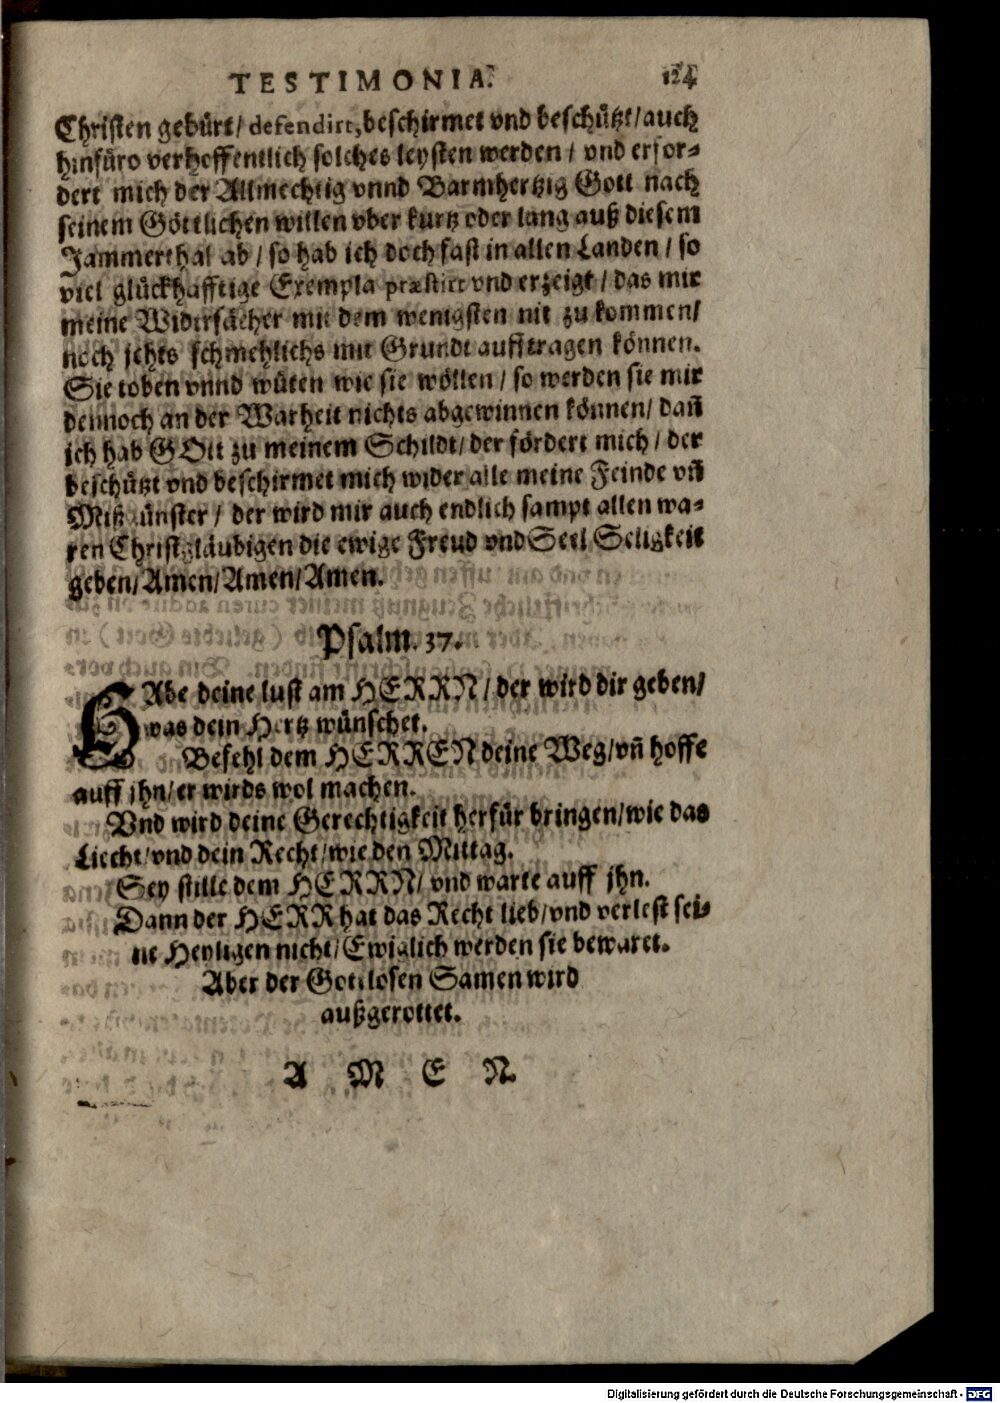 TESTIMONIA. 124
Christen gebürt/ defendirt, beschirmet vnd beschützt/ auch
hinfüro verhoffentlich solches leysten werden / vnd erfor-
dert mich der Allmechtig vnnd Barmhertzig Gott nach
seinem Göttlichen willen vber kurtz oder lang auß diesem
Jammerthal ab / so hab ich doch fast in allen Landen / so
viel glückhafftige Exempla præstirt vnd erzeigt / das mir
meine Widersächer mit dem wenigsten nit zu kommen/
noch jchts schmehlichs mit Grundt aufftragen können.
Sie toben vnnd wüten wie sie wöllen / so werden sie mir
dennoch an der Warheit nichts abgewinnen können/ dañ
ich hab GOtt zu meinem Schildt/ der fördert mich / der
beschützt vnd beschirmet mich wider alle meine Feinde vñ
Mißgünster / der wird mir auch endlich sampt allen wa-
ren Christgläubigen die ewige Freud vnd Seel Seligkeit
geben/ Amen/ Amen/ Amen.
Psalm. 37.
HAbe deine lust am HERRN / der wird dir geben/
was dein Hertz wünschet.
Befehl dem HERREN deine Weg/ vñ hoffe
auff jhn/ er wirds wol machen.
Vnd wird deine Gerechtigkeit herfür bringen/ wie das
Liecht/ vnd dein Recht/ wie den Mittag.
Sey stille dem HERRN/ vnd warte auff jhn.
Dann der HERR hat das Recht lieb/ vnd verlest sei-
ne Heyligen nicht/ Ewiglich werden sie bewaret.
Aber der Gottlosen Samen wird
außgerottet.
A M E N.
Digitalisierung gefördert durch die Deutsche Forschungsgemeinschaft - DFG